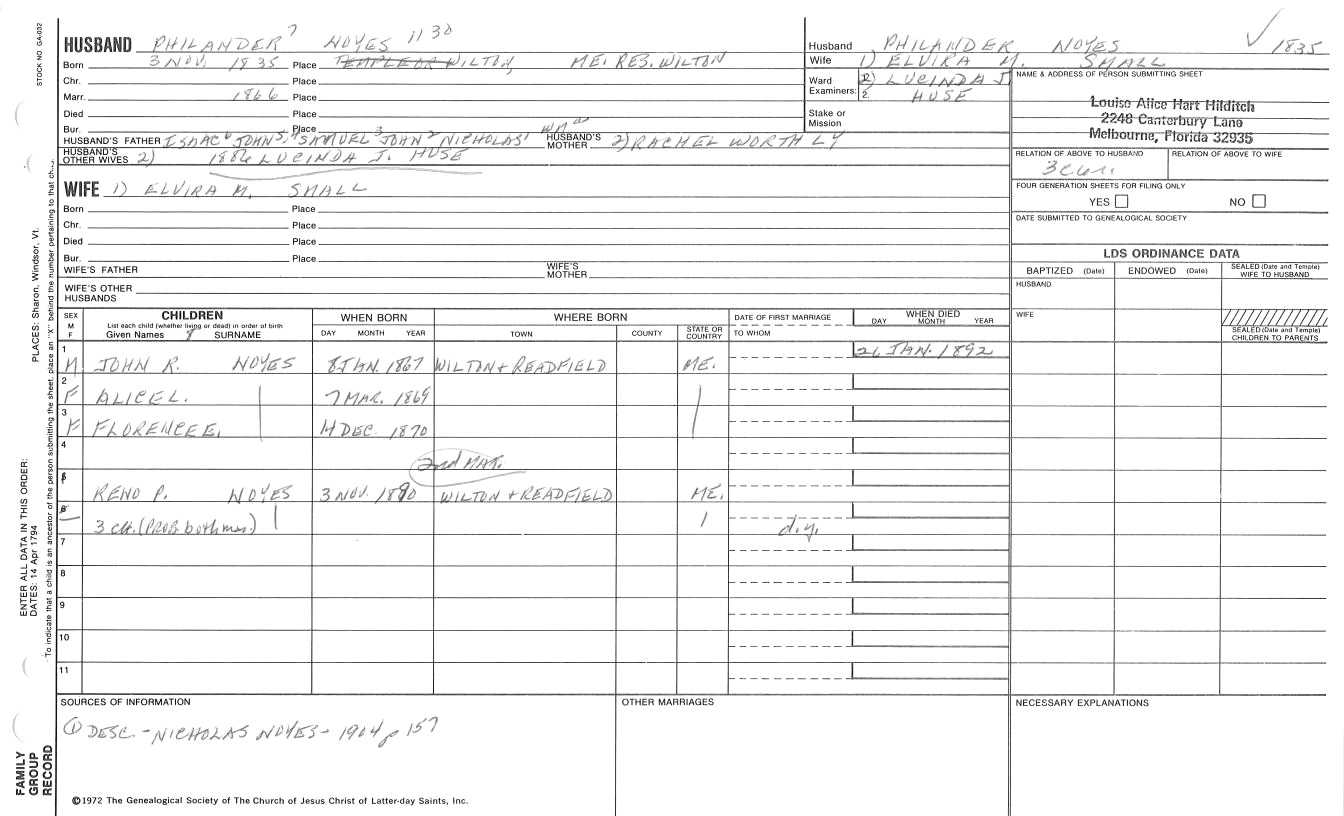 STOCK NO. GA-032
HUSBAND PHILANDER 7 NOYES 1130
Born 3 NOV. 1835 Place TEMPLE OR WILTON, ME. RES. WILTON
Chr. Place
Marr. 1866 Place
Died Place
Bur. Place
HUSBAND'S FATHER ISAAC 6 JOHN 5, 4 SAMUEL 3 JOHN 2 NICHOLAS 1 HUSBAND'S MOTHER 2) RACHEL WORTHLY
HUSBAND'S OTHER WIVES 2) 1886 LUCINDA J. HUSE
WIFE 1) ELVIRA M. SMALL
Born Place
Chr. Place
Died Place
Bur. Place
WIFE'S FATHER WIFE'S MOTHER
WIFE'S OTHER HUSBANDS
Husband PHILANDER NOYES 1835
Wife 1) ELVIRA M. SMALL
Ward Examiners: 1. 2. 2) LUCINDA J. HUSE
Stake or Mission
NAME & ADDRESS OF PERSON SUBMITTING SHEET
Louise Alice Hart Hilditch
2248 Canterbury Lane
Melbourne, Florida 32935
RELATION OF ABOVE TO HUSBAND RELATION OF ABOVE TO WIFE
FOUR GENERATION SHEETS FOR FILING ONLY
YES NO
DATE SUBMITTED TO GENEALOGICAL SOCIETY
LDS ORDINANCE DATA
BAPTIZED (Date) ENDOWED (Date) SEALED (Date and Temple) WIFE TO HUSBAND
HUSBAND
WIFE
SEALED (Date and Temple) CHILDREN TO PARENTS
SEX M F
CHILDREN
List each child (whether living or dead) in order of birth
Given Names 8 SURNAME
WHEN BORN
DAY MONTH YEAR
WHERE BORN
TOWN COUNTY STATE OR COUNTRY
DATE OF FIRST MARRIAGE
TO WHOM
WHEN DIED
DAY MONTH YEAR
1 M JOHN R. NOYES 8 JAN. 1867 WILTON + READFIELD ME. 21 JAN. 1892
2 F ALICE L. 7 MAR. 1869
3 F FLORENCE E. 14 DEC 1870
4 2nd MAR.
5 RENO P. NOYES 3 NOV. 1890 WILTON + READFIELD ME.
6 3 ch. (PROB both mar.) d.y.
7
8
9
10
11
SOURCES OF INFORMATION
① DESC. - NICHOLAS NOYES - 1904 p 157
©1972 The Genealogical Society of The Church of Jesus Christ of Latter-day Saints, Inc.
OTHER MARRIAGES
NECESSARY EXPLANATIONS
FAMILY GROUP RECORD
ENTER ALL DATA IN THIS ORDER:
DATES: 14 Apr 1794
PLACES: Sharon, Windsor, Vt.
To indicate that a child is an ancestor of the person submitting the sheet, place an "X" behind the number pertaining to that